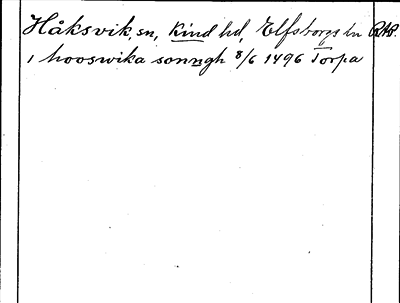 Håksvik, sn, Kind hd, Elfsborgs ln RAP.
i hooswika sonngh 8/6 1496 Torpa